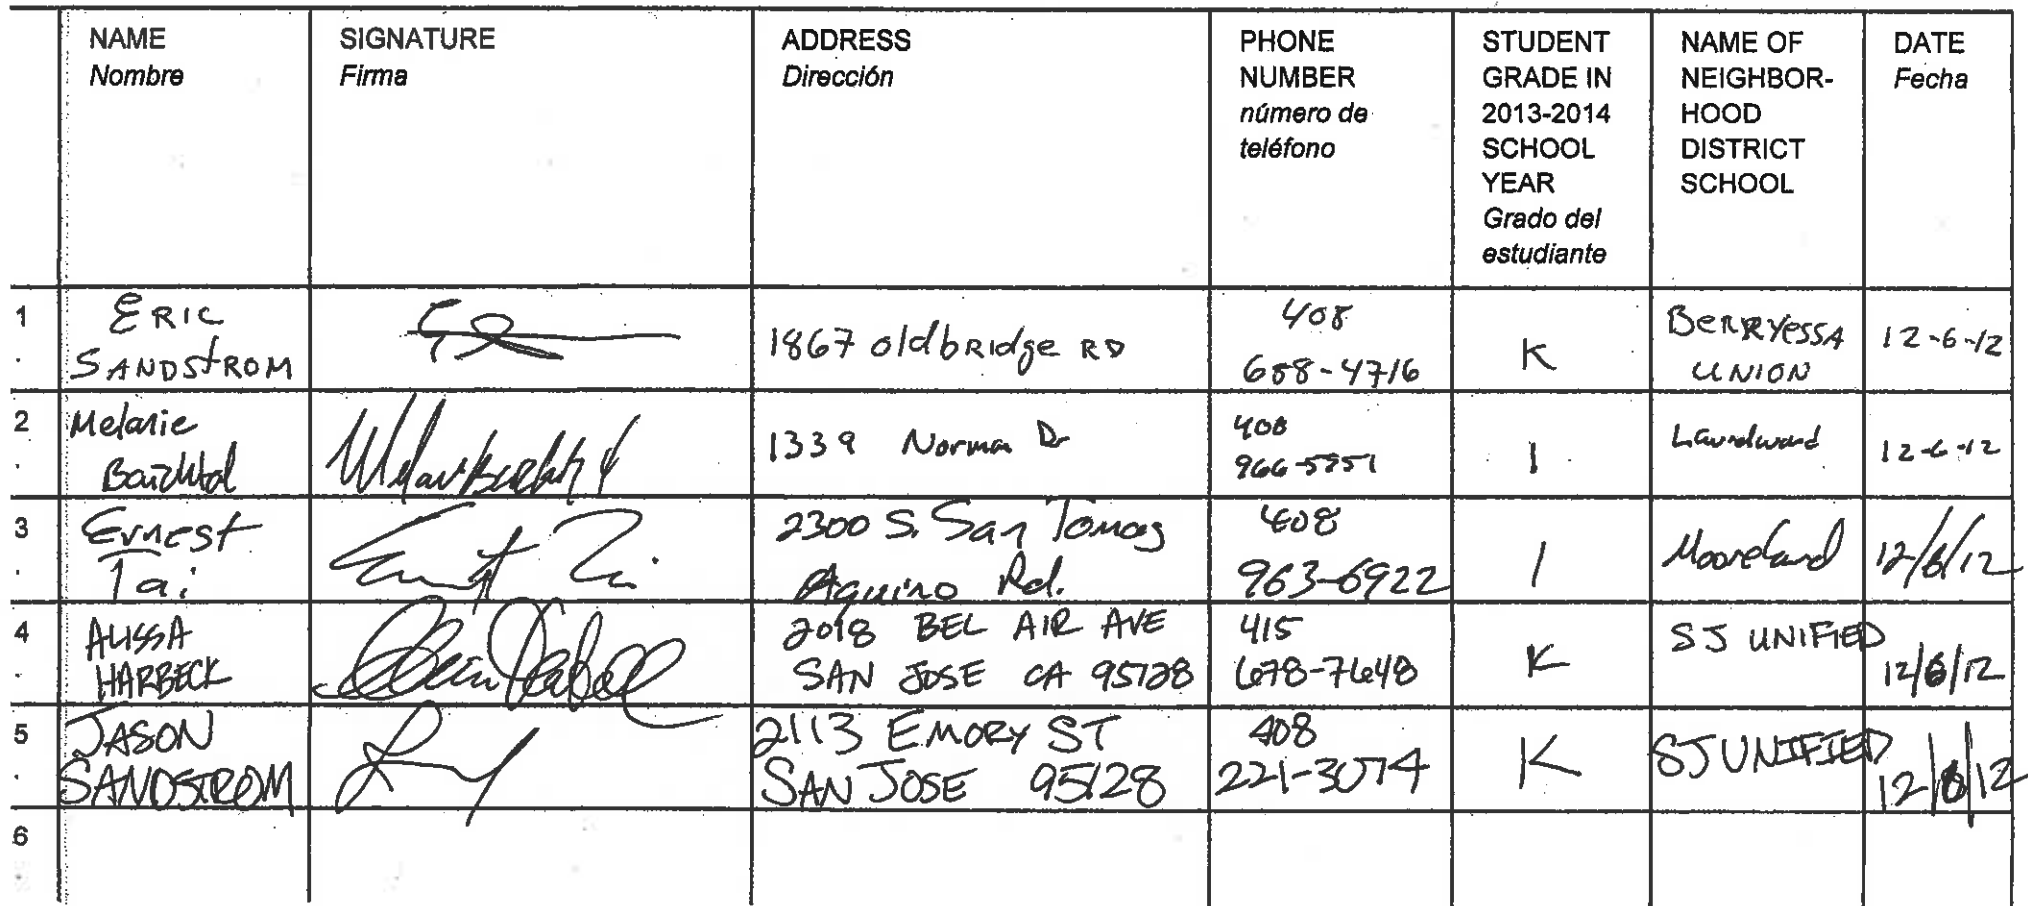 NAME
Nombre
SIGNATURE
Firma
ADDRESS
Dirección
PHONE
NUMBER
número de
teléfono
STUDENT
GRADE IN
2013-2014
SCHOOL
YEAR
Grado del
estudiante
NAME OF
NEIGHBOR-
HOOD
DISTRICT
SCHOOL
DATE
Fecha
1
ERIC
SANDSTROM
1867 oldbRidge RD
408
688-4716
K
BERRYESSA
UNION
12-6-12
2
Melanie
1339 Norman Dr
408
1
12-6-12
3
Ernest
Tai
Ernest Tai
2300 S. San Tomas
Aquino Rd.
408
963-6922
1
Mooreland
12/6/12
4
ALISSA
HARBECK
2018 BEL AIR AVE
SAN JOSE CA 95128
415
678-7648
K
SJ UNIFIED
12/6/12
5
JASON
SANDSTROM
2113 EMORY ST
SAN JOSE 95128
408
221-3074
K
SJ UNIFIED
12/6/12
6